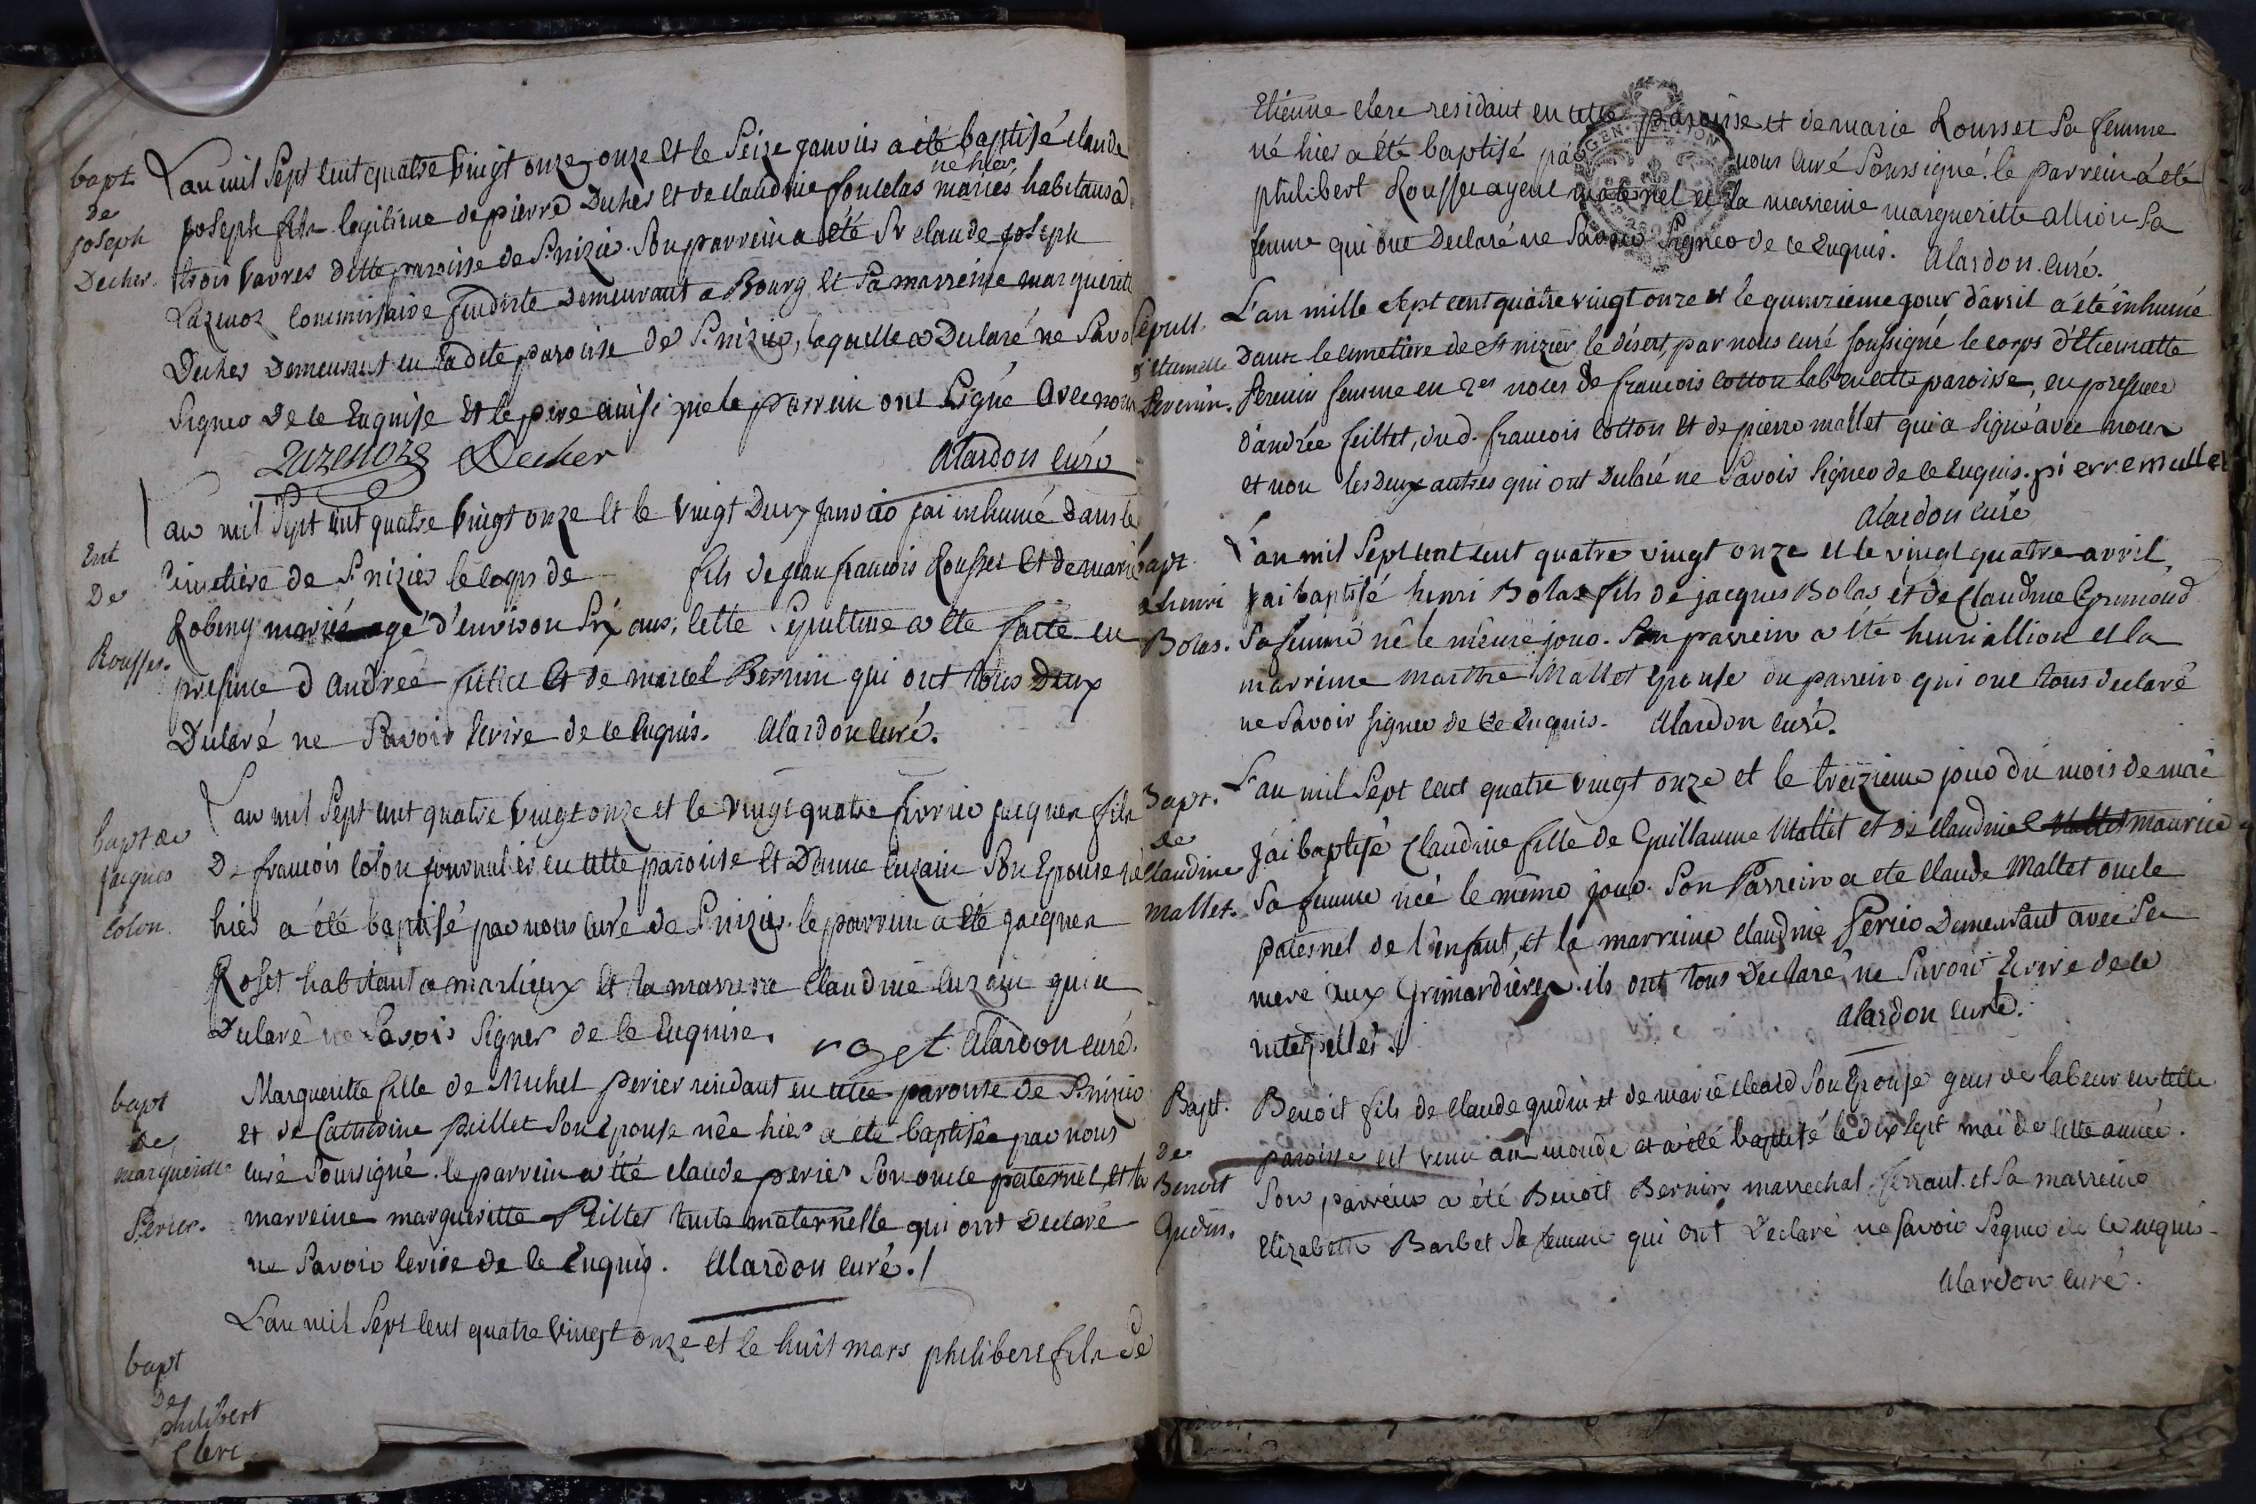 bapt
de
joseph
Decher.
L'an mil Sept cent quatre vingt onze onze et le Seize janvier a été baptisé claude
né hier
joseph fils legitime de pierre Decher et de claudine foulelas mariés habitans a
trois vavres dette paroisse de St nizier. Son parrein a été Sr claude joseph
commissaire demeurant a Bourg et Sa marreine marguerite
Decher Demeurant en la dite paroisse de St nizier, laquelle a Declaré ne Savoir
Signer De ce Enquise et le pere ainsi que le parrein ont Signé avec nous
Decher Alardon curé
Ent
De
Rousset.
L'an mil Sept cent quatre vingt onze et le vingt Deux janvier jai inhumé dans le
cimetiere de St nizier le corps de fils de jean francois Rousset et de marie
Robing mariés agé d'environ Six ans, cette Sepulture a été faite en
presence d'andreé feillet et de marcel Bernin qui ont tous Deux
Declaré ne Savoir Ecrire de ce Enquis. Alardon curé.
bapt de
jacques
Colon.
L'an mil Sept cent quatre vingt onze et le vingt quatre fevrier jacques fils
De francois Colon journalier en cette paroisse et D'anne cuzain Son Epouse né
hier a été baptisé par nous curé de St nizier. le parrein a été jacques
Roset habitant a marlieux et la marreine Claudine cuzain qui a
Declaré ne Savoir Signer de ce Enquise. roset Alardon curé.
bapt
de
marguerite
Perier.
Marguerite fille de Michel perier residant en cette paroisse de St nizier
et de Catherine Peillet Son Epouse née hier a été baptisée par nous
curé Soussigné. le parrein a été claude perier Son oncle paternel, et la
marreine marguerite Peillet tante maternelle qui ont Declaré
ne Savoir Ecrire de ce Enquis. Alardon curé./
bapt
De
philibert
Clerc
L'an mil Sept cent quatre vingt onze et le huit mars philibert fils de
Etienne clerc residant en cette paroisse et de marie Rousset Sa femme
né hier a été baptisé par nous curé Soussigné. le parrein a été
philibert Rousset ayeul maternel et la marreine marguerite allion Sa
femme qui ont Declaré ne Savoir Signer de ce Enquis. Alardon curé.
Sepult.
d'etiennette
Perenin.
L'an mille Sept cent quatre vingt onze et le quinzieme jour d'avril a été inhumé
Dans le cimetiere de St nizier le désert, par nous curé Soussigné le corps d'Etiennette
Perenin femme en 2es noces de francois Cotton labr en cette paroisse, en presence
d'andrée feillet, dud. francois Cotton et de pierre mallet qui a signé avec nous
et non les Deux autres qui ont Declaré ne Savoir Signer de ce Enquis. pierre mallet
Alardon curé
bapt.
d henri
Bolas.
L'an mil Sept cent cent quatre vingt onze et le vingt quatre avril,
jai baptisé henri Bolas fils de jacques Bolas et de Claudine Grimoud
Sa femme né le même jour. Son parrein a été henri allion et la
marreine marthe Mallet epouse du parrein qui ont tous declaré
ne Savoir signer de ce Enquis. Alardon curé.
Bapt.
de
Claudine
Mallet.
L'an mil Sept cent quatre vingt onze et le treizieme jour du mois de mai
J'ai baptisé Claudine fille de Guillaume Mallet et de Claudine Mallet maurice
Sa femme née le même jour. Son Parrein a été Claude Mallet oncle
paternel de l'enfant, et la marreine claudine Perier Demeurant avec Sa
mere aux Grimardières. ils ont tous Declaré ne Savoir Ecrire de ce
interpellés. Alardon curé.
Bapt.
de
Benoit
Gudin.
Benoit fils de claude gudin et de marie cleard Son Epouse gens de labeur en cette
paroisse est venu au monde et a été baptisé le dix sept mai de cette année.
Son parrein a été Benoit Bernin marrechal ferrant. et Sa marreine
Elizabeth Barbet Sa femme qui ont Declaré ne Savoir Signer de ce enquis.
Alardon curé.